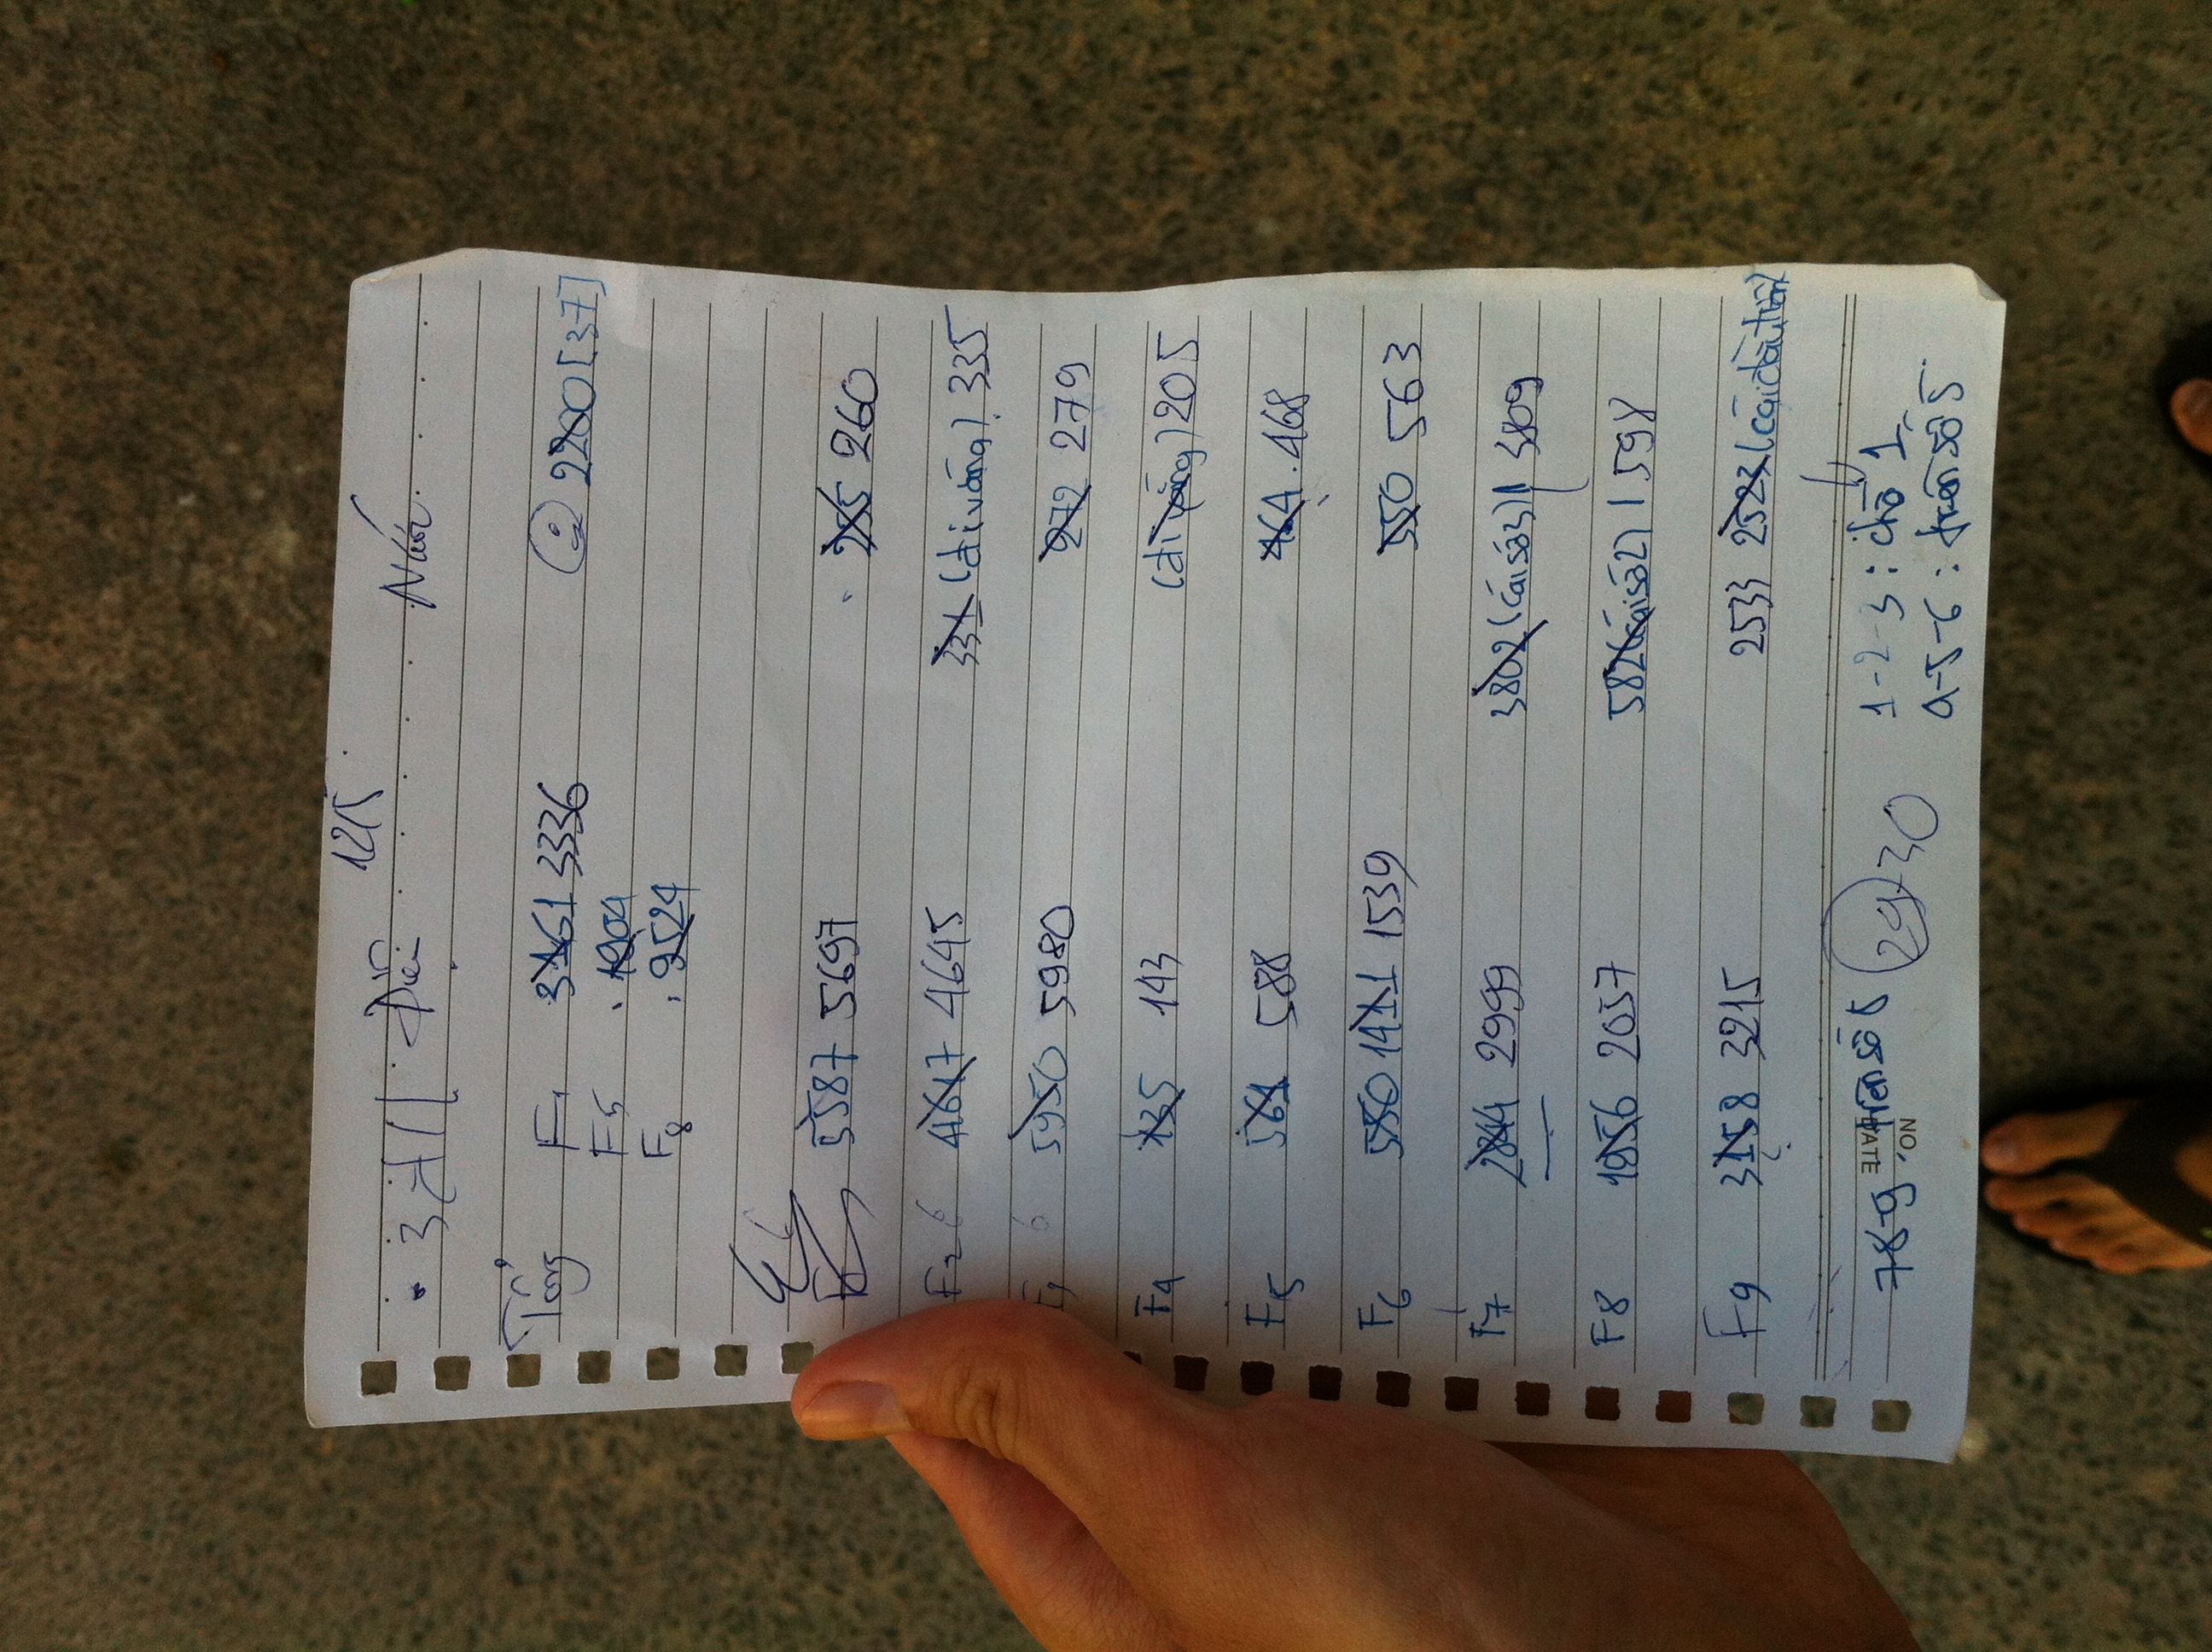 12/5
Điện Nước
Tổng F1 3161 3336 2200 [37]
F5 1904
F8 2524
5587 5697 255 260
F2 6 4617 4645 331 (đi vắng) 335
6 5950 5980 272 279
F4 135 143 (đi vắng) 205
F5 561 588 464 468
F6 550 1411 1539 550 563
F7 2844 2999 3802 (cái số 3) 3809
F8 1956 2057 582 (cái số 2) 598
F9 3158 3215 2533 2523 (cái đầu tiên)
7-8-9 trên số 5 29-30 1-2-3: chỗ 1
NO. DATE 4-5-6: trên số 5